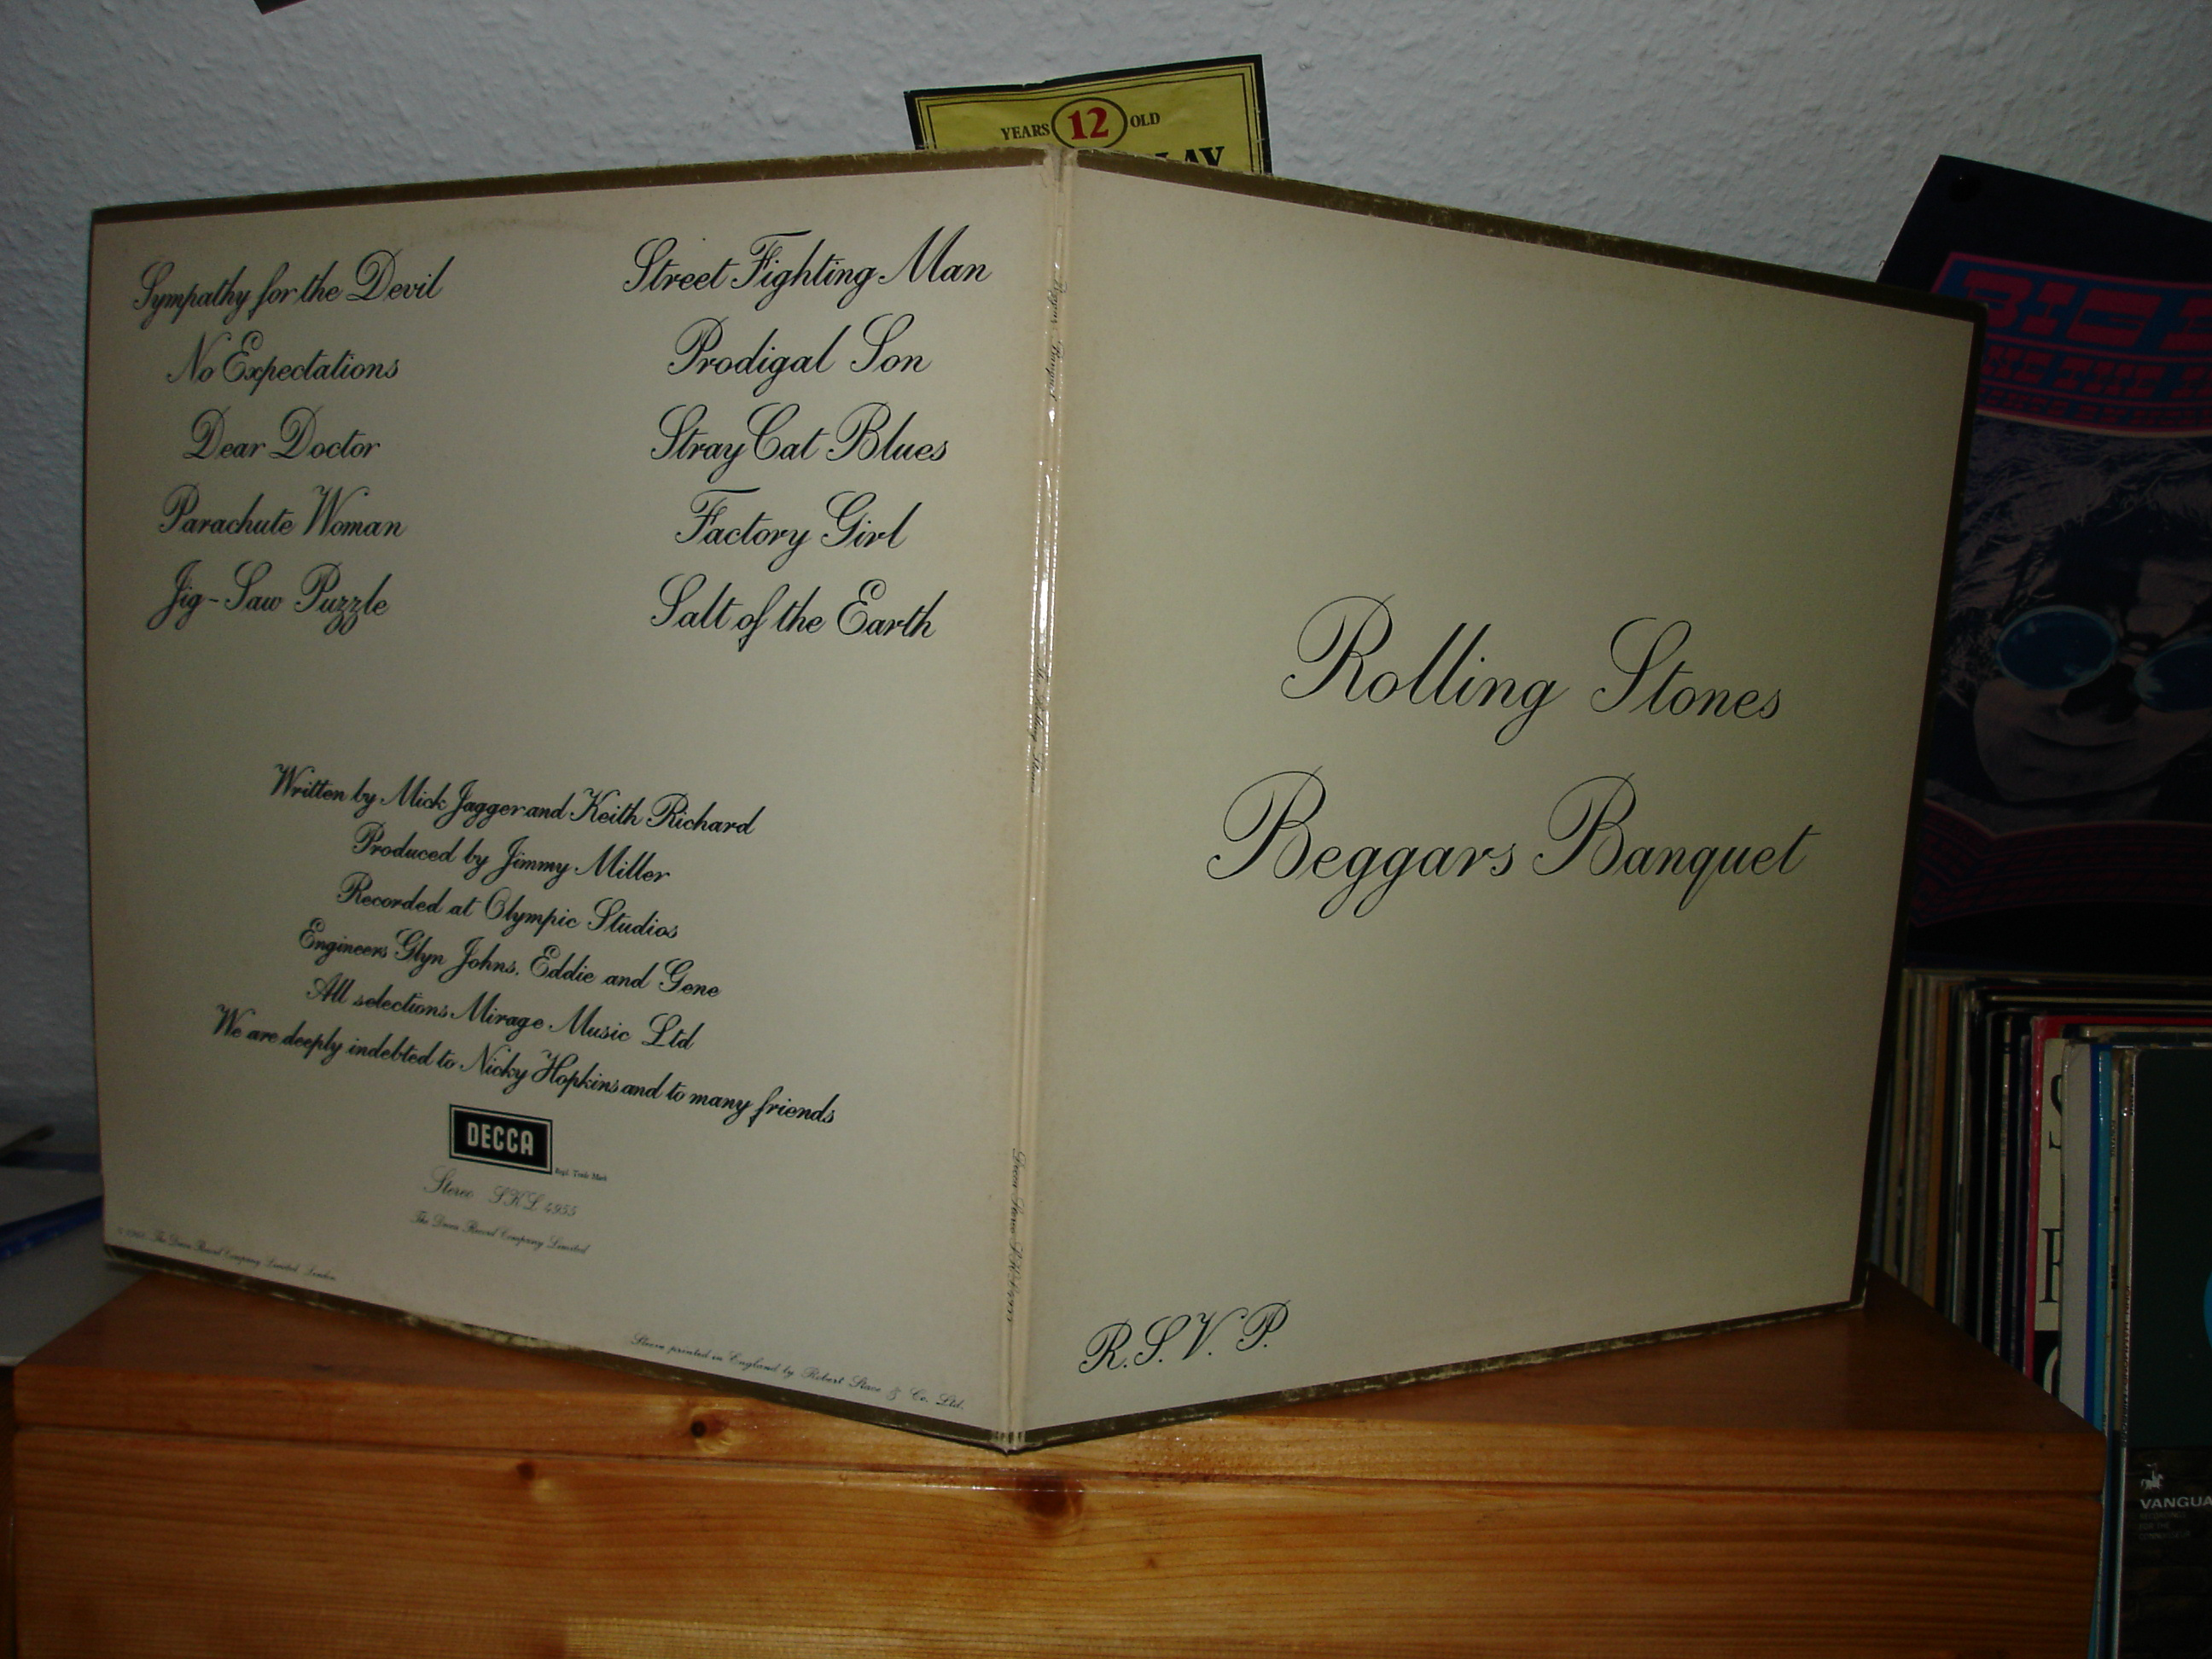 YEARS 12 OLD
Sympathy for the Devil
No Expectations
Dear Doctor
Parachute Woman
Jig-Saw Puzzle
Street Fighting Man
Prodigal Son
Stray Cat Blues
Factory Girl
Salt of the Earth
Written by Mick Jagger and Keith Richard
Produced by Jimmy Miller
Recorded at Olympic Studios
Engineers Glyn Johns, Eddie and Gene
All selections Mirage Music Ltd
We are deeply indebted to Nicky Hopkins and to many friends
DECCA
Regd. Trade Mark
Stereo SKL 4955
The Decca Record Company Limited
The Decca Record Company Limited London
Sleeve printed in England by Robert Stace & Co. Ltd.
Beggars Banquet
The Rolling Stones
Decca Stereo SKL 4955
Rolling Stones
Beggars Banquet
R.S.V.P.
BIG
VANGUA